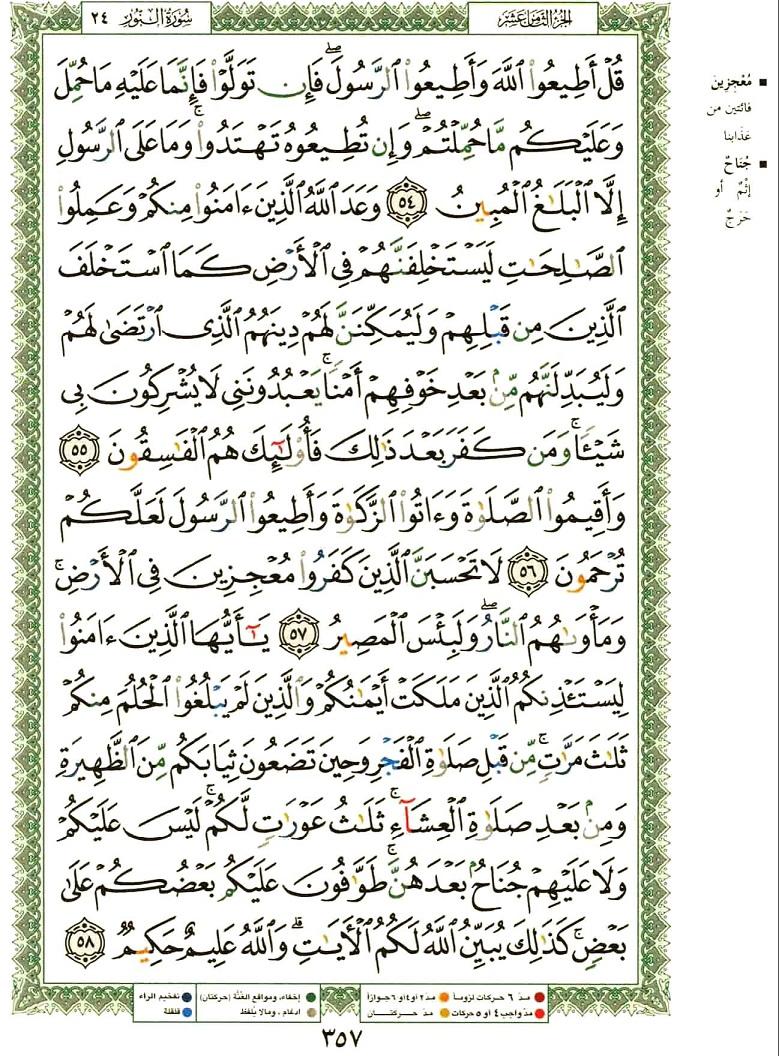 الجزء الثامن عشر
سورة النور ٢٤
قُلْ أَطِيعُوا۟ ٱللَّهَ وَأَطِيعُوا۟ ٱلرَّسُولَ ۖ فَإِن تَوَلَّوْا۟ فَإِنَّمَا عَلَيْهِ مَا حُمِّلَ
وَعَلَيْكُم مَّا حُمِّلْتُمْ ۖ وَإِن تُطِيعُوهُ تَهْتَدُوا۟ ۚ وَمَا عَلَى ٱلرَّسُولِ
إِلَّا ٱلْبَلَـٰغُ ٱلْمُبِينُ ٥٤ وَعَدَ ٱللَّهُ ٱلَّذِينَ ءَامَنُوا۟ مِنكُمْ وَعَمِلُوا۟
ٱلصَّـٰلِحَـٰتِ لَيَسْتَخْلِفَنَّهُمْ فِى ٱلْأَرْضِ كَمَا ٱسْتَخْلَفَ
ٱلَّذِينَ مِن قَبْلِهِمْ وَلَيُمَكِّنَنَّ لَهُمْ دِينَهُمُ ٱلَّذِى ٱرْتَضَىٰ لَهُمْ
وَلَيُبَدِّلَنَّهُم مِّنۢ بَعْدِ خَوْفِهِمْ أَمْنًا ۚ يَعْبُدُونَنِى لَا يُشْرِكُونَ بِى
شَيْـًٔا ۚ وَمَن كَفَرَ بَعْدَ ذَٰلِكَ فَأُو۟لَـٰٓئِكَ هُمُ ٱلْفَـٰسِقُونَ ٥٥
وَأَقِيمُوا۟ ٱلصَّلَوٰةَ وَءَاتُوا۟ ٱلزَّكَوٰةَ وَأَطِيعُوا۟ ٱلرَّسُولَ لَعَلَّكُمْ
تُرْحَمُونَ ٥٦ لَا تَحْسَبَنَّ ٱلَّذِينَ كَفَرُوا۟ مُعْجِزِينَ فِى ٱلْأَرْضِ ۚ
وَمَأْوَىٰهُمُ ٱلنَّارُ ۖ وَلَبِئْسَ ٱلْمَصِيرُ ٥٧ يَـٰٓأَيُّهَا ٱلَّذِينَ ءَامَنُوا۟
لِيَسْتَـْٔذِنكُمُ ٱلَّذِينَ مَلَكَتْ أَيْمَـٰنُكُمْ وَٱلَّذِينَ لَمْ يَبْلُغُوا۟ ٱلْحُلُمَ مِنكُمْ
ثَلَـٰثَ مَرَّٰتٍ ۚ مِّن قَبْلِ صَلَوٰةِ ٱلْفَجْرِ وَحِينَ تَضَعُونَ ثِيَابَكُم مِّنَ ٱلظَّهِيرَةِ
وَمِنۢ بَعْدِ صَلَوٰةِ ٱلْعِشَآءِ ۚ ثَلَـٰثُ عَوْرَٰتٍ لَّكُمْ ۚ لَيْسَ عَلَيْكُمْ
وَلَا عَلَيْهِمْ جُنَاحٌۢ بَعْدَهُنَّ ۚ طَوَّٰفُونَ عَلَيْكُم بَعْضُكُمْ عَلَىٰ
بَعْضٍ ۚ كَذَٰلِكَ يُبَيِّنُ ٱللَّهُ لَكُمُ ٱلْـَٔايَـٰتِ ۗ وَٱللَّهُ عَلِيمٌ حَكِيمٌ ٥٨
■ مُعْجِزِينَ
فائتين من
عَذابنا
■ جُنَاحٌ
إثْمٌ أو
حَرَجٌ
● مدّ ٦ حركات لزوماً ● مدّ ٢ أو ٤ أو ٦ جوازاً
● مدّ واجب ٤ أو ٥ حركات ● مدّ حركتان
● إخفاء، ومواقع الغُنَّة (حركتان)
● ادغام، ومالا يُلفظ
● تفخيم الراء
● قلقلة
٣٥٧